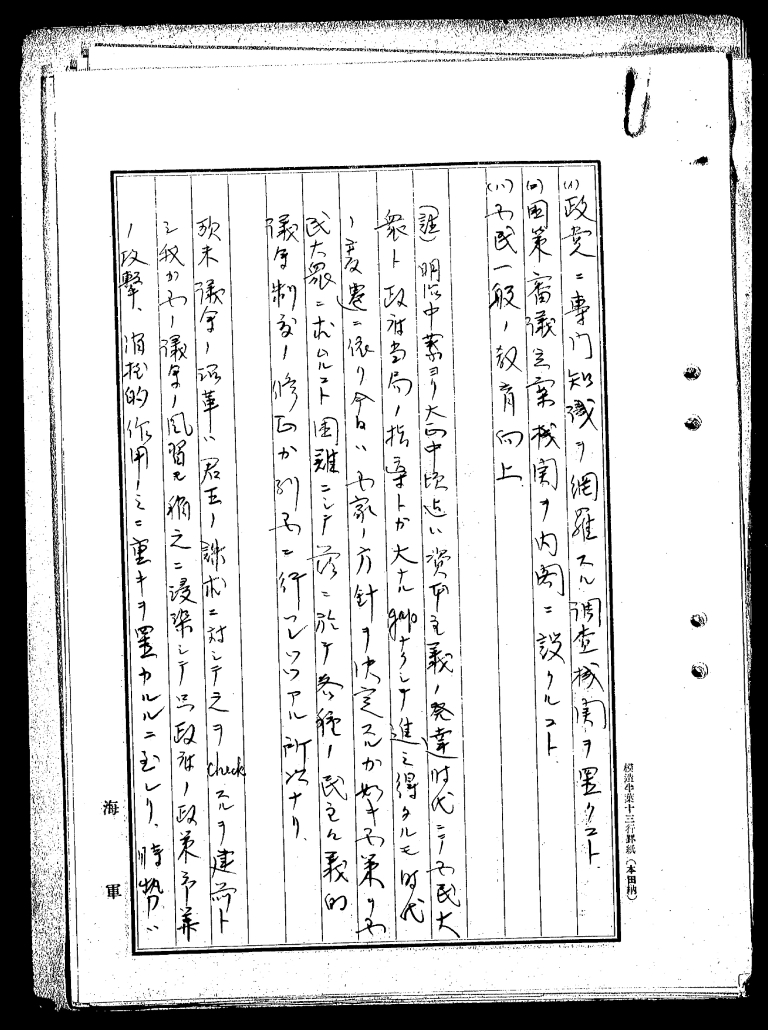 (イ)政党ニ専門知識ヲ網羅スル調査機関ヲ置クコト
(ロ)国策審議立案機関ヲ内閣ニ設クルコト
(ハ)国民一般ノ教育向上
(註)明治中葉ヨリ大正中頃迄ハ資本主義ノ発達時代ニテ国民大
衆ト政府当局ノ指導トカ大ナルgapナクシテ進ミ得タルモ時代
ノ変遷ニ依リ今日ハ国家ノ方針ヲ決定スルカ如キ国策ヲ国
民大衆ニ求ムルコト困難ニシテ茲ニ於テ各種ノ民主主義的
議会制度ノ修正カ列国ニ行ハレツツアル所以ナリ
欧米議会ノ沿革ハ君主ノ誅求ニ対シテ之ヲcheckスルヲ建前ト
シ我カ国ノ議会ノ風習モ稍之ニ浸染シテ只政府ノ政策予算
ノ攻撃、消極的作用ノミニ重キヲ置カルルニ至レリ、時勢ハ
海軍
模造半葉十三行罫紙(本田納)